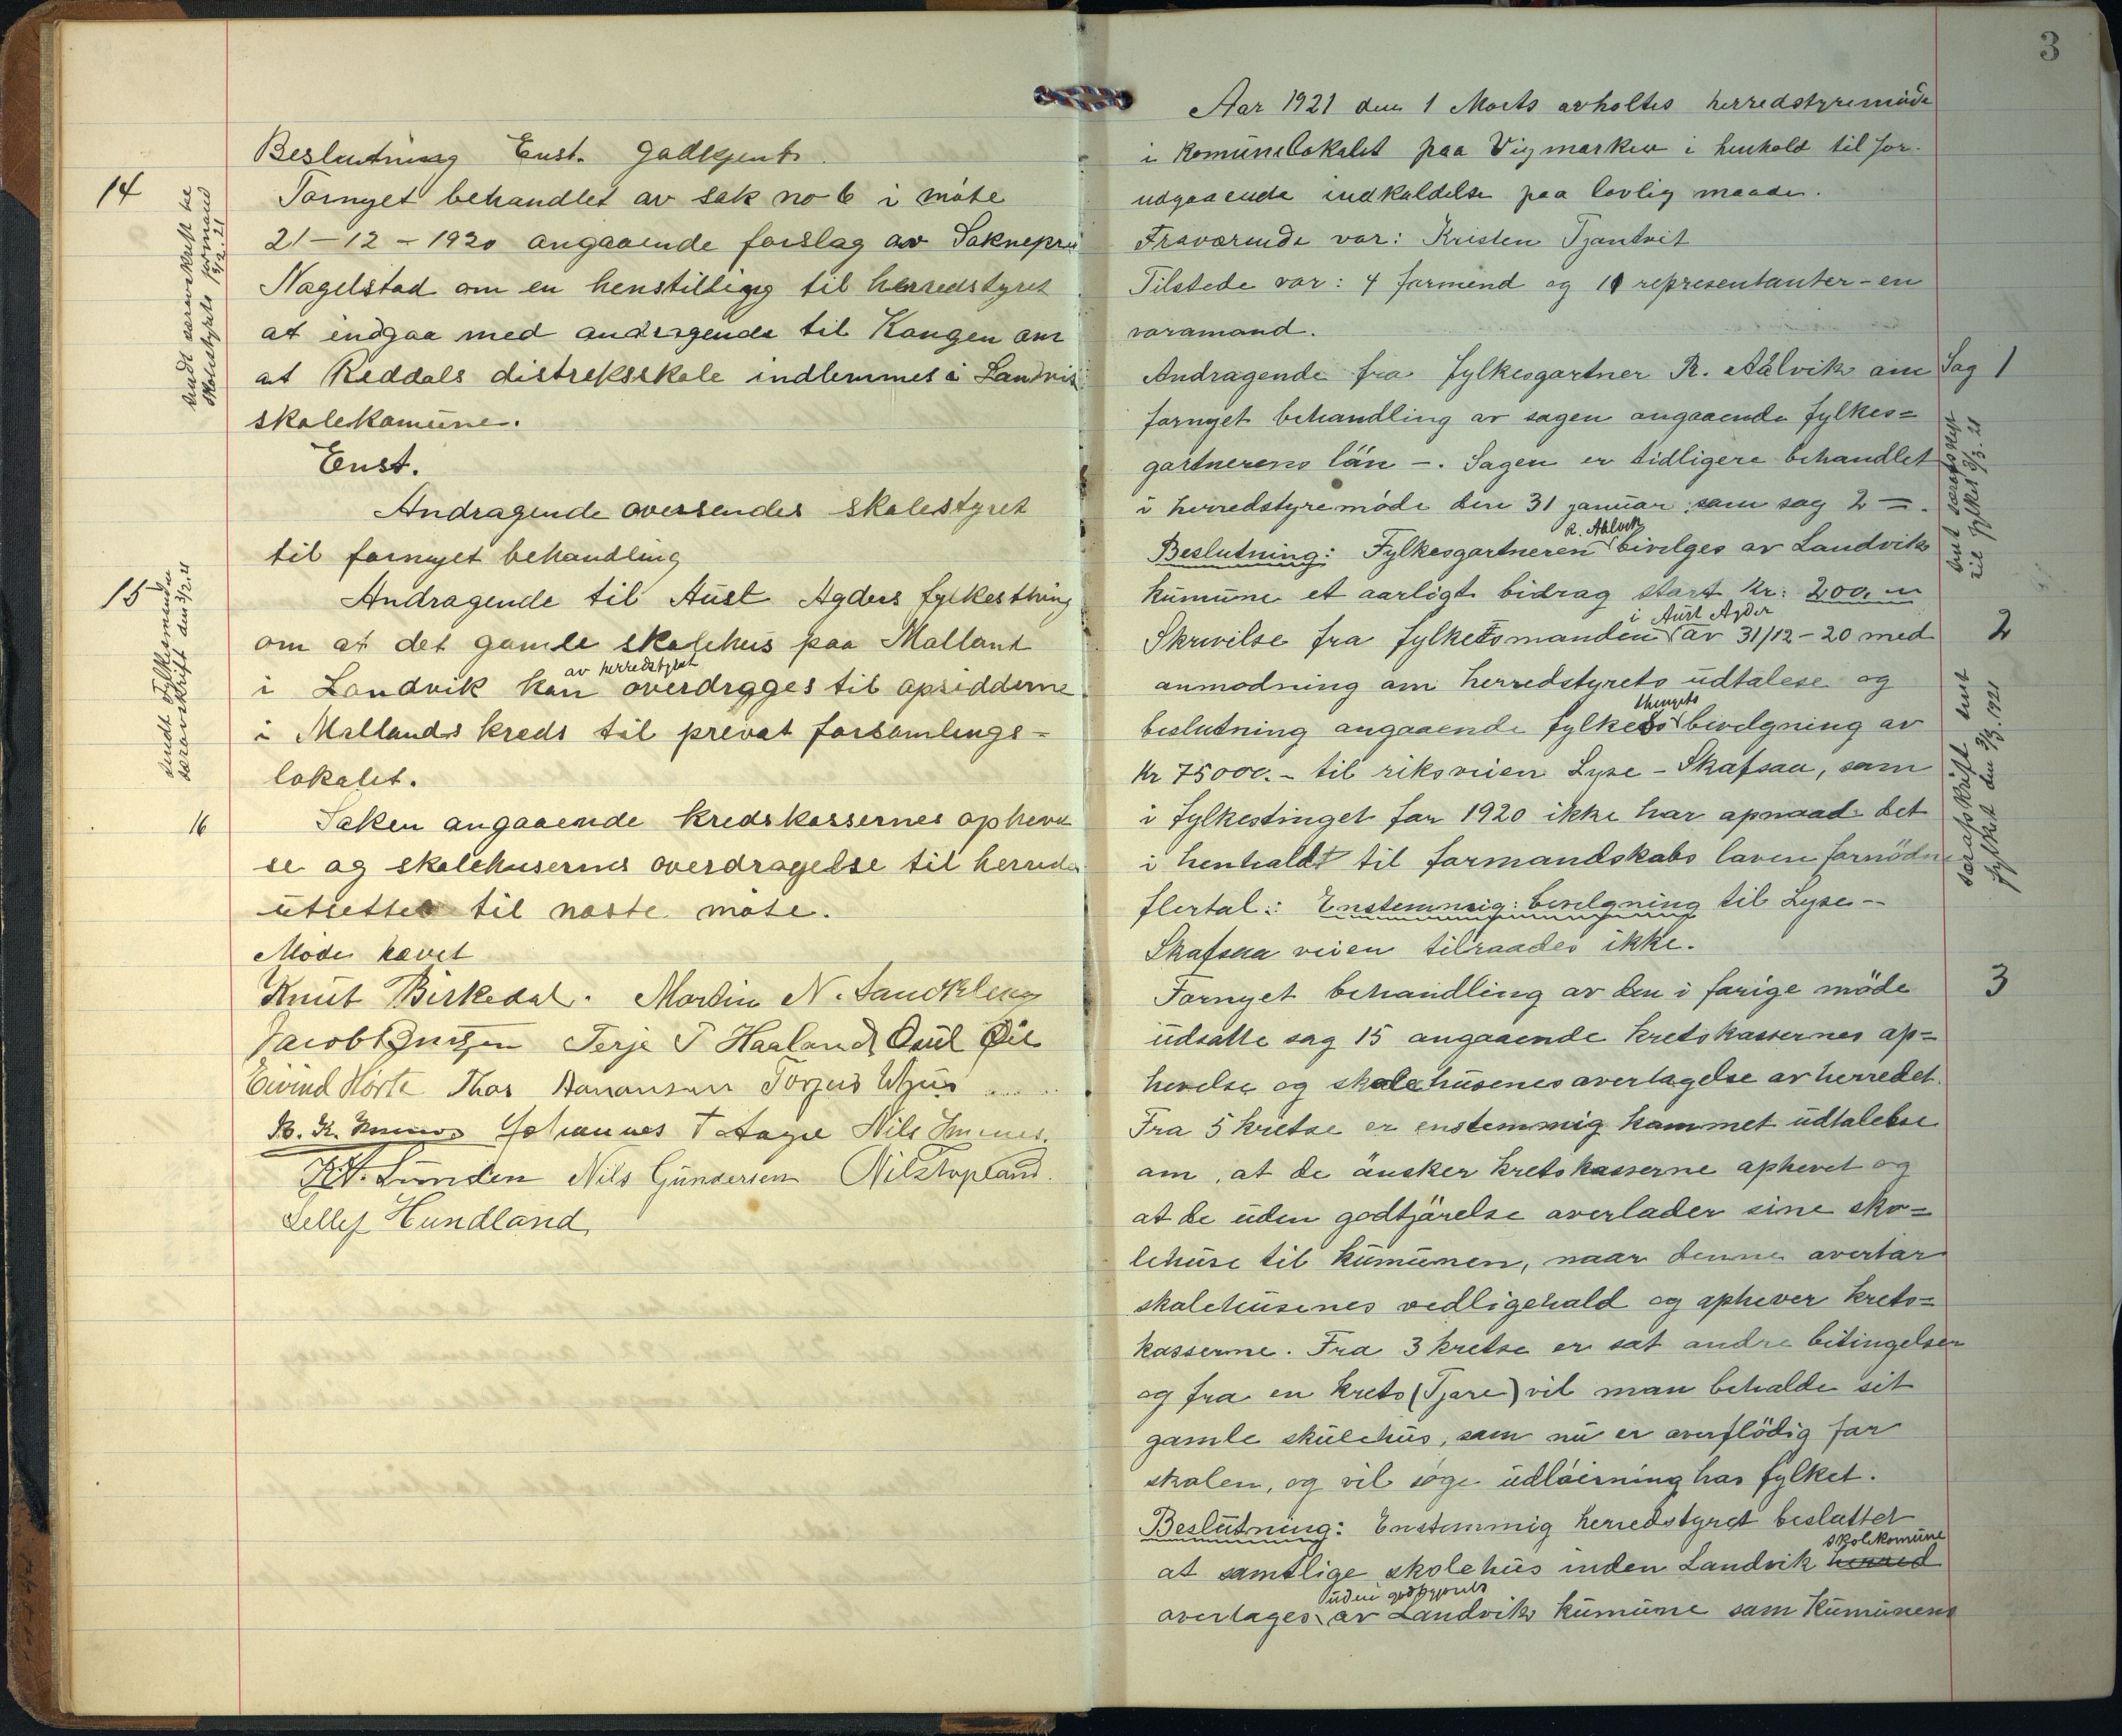 Beslutning Enst. godkjent.
14
Sendt særavskrift til
skolestyrets formand
5/2.21
Fornyet behandlet av sak no 6 i møte
21-12-1920 angaaende forslag av Sakneprest
Nagelstad om en henstilling til herredstyret
at indgaa med andragende til Kongen om
at Reddals distriksskole indlemmes i Landvik
skolekomune.
Enst.
Andragende oversendes skolestyret
til fornyet behandling
15
Sendt Fylkesmanden
særavskrift den 3/2.21
Andragende til Aust Agders fylkesthing
om at det gamle skolehus paa Malland
av herredstyret
i Landvik kan overdrages til opsidderne
i Mallands kreds til prevat forsamlings-
lokalet.
16
Saken angaaende kredskassernes opheve
se og skolehusernes overdragelse til herreds
utsettes til næste møte.
Møde hævet
Knut Birkedal. Martin N.
Jacob Terje T Haaland
Eivind Hörte Thor Aamansen Torjus
Johannes T Nils
K.A. Lunden Nils Gundersen Nils Topland
Sellef Hundland
3
Aar 1921 den 1 Marts avholtes herredstyremøde
i komunelokalet paa Vigmarken i henhold til for-
udgaaende indkaldelse paa lovlig maade.
Fraværende var: Kristen Tjantveit
Tilstede var: 4 formend og 11 representanter - en
varamand.
Sag 1
Andragende fra fylkesgartner R. Aalvik om
fornyet behandling av sagen angaaende fylkes=
gartnerens lön -. Sagen er tidligere behandlet
i herredstyremöde den 31 januar som sag 2 =.
R. Aalvik
Beslutning: Fylkesgartneren bivilges av Landvik
kumune et aarligt bidrag stort kr: 200.
til fylket 3/3.21
2
i Aust Agder
Skrivelse fra fylketsmanden av 31/12-20 med
anmodning om herredstyrets udtalese og
thingets
beslutning angaaende fylkes bevilgning av
Kr 75000.- til riksveien Lyse - Skafsaa, som
i fylkestinget for 1920 ikke har opnaad det
i henhaldt til formandskabs loven fornödne
flertal: Enstemmig: bevilgning til Lyse -
Skafsaa veien tilraades ikke.
særafskrift sent
fylket den 3/3.1921
3
Fornyet behandling av den i forige möde
udsatte sag 15 angaaende kretskassernes op=
hevelse og skolehusenes overtagelse av herredet.
Fra 5 kretse er enstemmig kommet udtalelse
om, at de önsker kretskasserne ophevet og
at de uden godtjörelse overlader sine sko=
lehuse til kumunen, naar denne overtar
skolehusenes vedligehald og ophever krets=
kasserne. Fra 3 kretse er sat andre bitingelser
og fra en krets (Tjore) vil man beholde sit
gamle skulehus, som nu er overflödig for
skolen, og vil söge udlöisning hos fylket.
Beslutning: Enstemmig herredstyret besluttet
skolekomune
at samtlige skolehus inden Landvik herred
uden godtgjørels
overtages av Landvik kumune som Kumunens